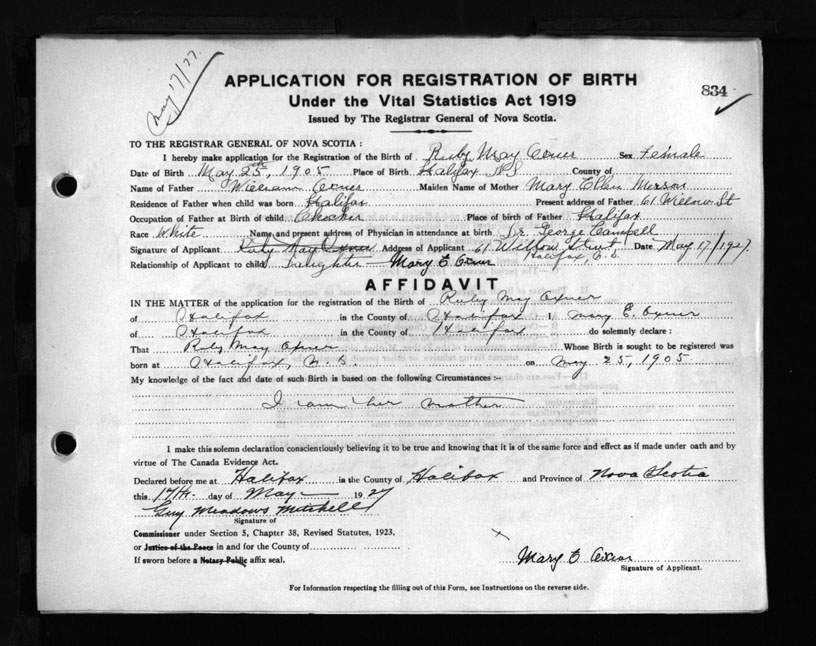 May 17/27.
APPLICATION FOR REGISTRATION OF BIRTH
834
Under the Vital Statistics Act 1919
Issued by The Registrar General of Nova Scotia.
TO THE REGISTRAR GENERAL OF NOVA SCOTIA:
I hereby make application for the Registration of the Birth of Ruby May Oxner Sex Female
Date of Birth May 25th, 1905 Place of Birth Halifax N S County of
Name of Father William Oxner Maiden Name of Mother Mary Ellen Merson
Residence of Father when child was born Halifax Present address of Father 61 Willow St
Occupation of Father at Birth of child Place of birth of Father Halifax
Race White Name and present address of Physician in attendance at birth Dr. George Campbell
Signature of Applicant Ruby May Oxner Address of Applicant 61 Willow Street Date May 17/1927.
Halifax, N.S.
Relationship of Applicant to child Mary E Oxner
AFFIDAVIT
IN THE MATTER of the application for the registration of the Birth of Ruby May Oxner
of Halifax in the County of Halifax I, Mary E. Oxner
of Halifax in the County of Halifax do solemnly declare:
That Ruby May Oxner Whose Birth is sought to be registered was
born at Halifax, N. S. on May 25, 1905
My knowledge of the fact and date of such Birth is based on the following Circumstances :-
I am her mother
I make this solemn declaration conscientiously believing it to be true and knowing that it is of the same force and effect as if made under oath and by
virtue of The Canada Evidence Act.
Declared before me at Halifax in the County of Halifax and Province of Nova Scotia
this 17th day of May 1927
Guy Meadows Mitchell
Signature of
Commissioner under Section 5, Chapter 38, Revised Statutes, 1923,
or Justice of the Peace in and for the County of
If sworn before a Notary Public affix seal.
x
Mary E Oxner
Signature of Applicant.
For Information respecting the filling out of this Form, see Instructions on the reverse side.